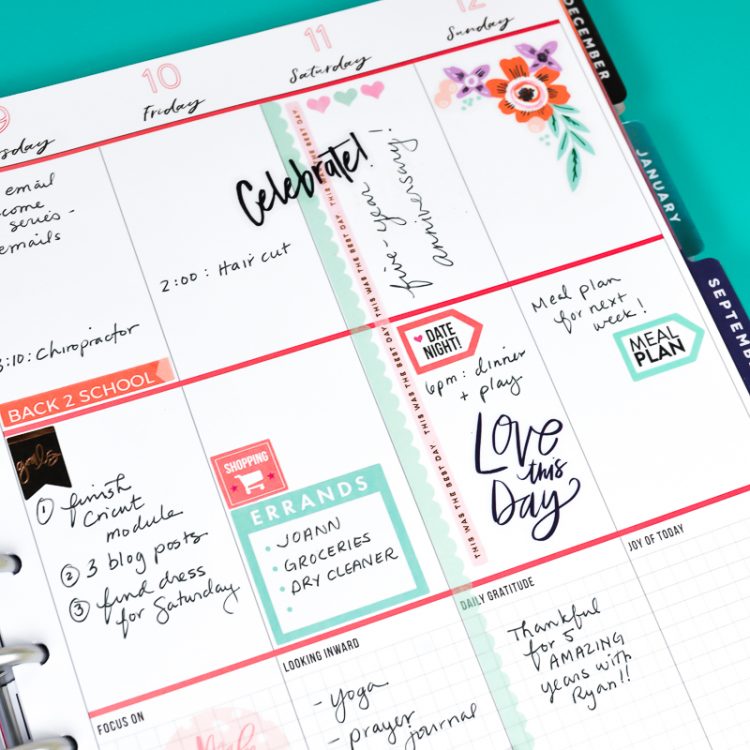 10
11
12
sday
Friday
Saturday
Sunday
DECEMBER
JANUARY
SEPTEMB
email
come
series -
emails
3:10: Chiropractor
2:00: Hair cut
Celebrate!
five-year
anniversary!
THIS WAS THE BEST DAY
THIS WAS THE BEST DAY
THIS WAS THE BEST DAY
THIS WAS THE BEST DAY
THIS WAS THE BEST DAY
BACK 2 SCHOOL
goals
① finish
Cricut
module
② 3 blog posts
③ find dress
for Saturday
SHOPPING
ERRANDS
JOANN
GROCERIES
DRY CLEANER
DATE
NIGHT!
6pm: dinner
+ play
LOVE
this
Day
Meal plan
for next
week!
MEAL
PLAN
FOCUS ON
LOOKING INWARD
- yoga
- prayer
journal
DAILY GRATITUDE
Thankful
for 5
AMAZING
years with
Ryan!!
JOY OF TODAY